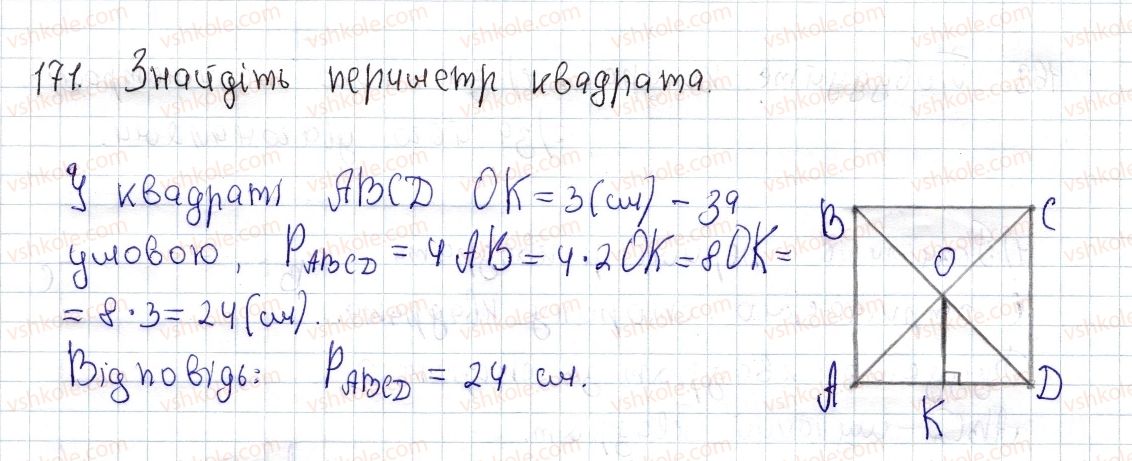 171. Знайдіть периметр квадрата.
У квадраті ABCD OK = 3 (см) - за
умовою, P_ABCD = 4 AB = 4 · 2 OK = 8 OK =
= 8 · 3 = 24 (см).
Відповідь: P_ABCD = 24 см.
B
C
O
A
K
D
vshkole.com